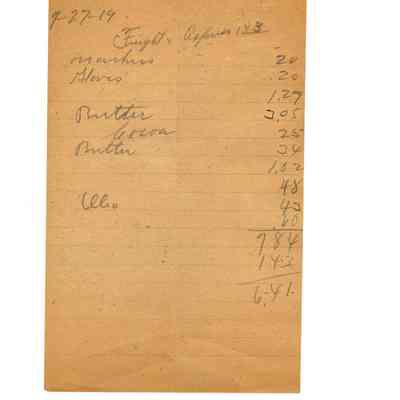 9-27-19
Freight & Express 1.43
Matches 20
Gloves .20
1.27
Butter 3.05
Cocoa 25
Butter 34
1.02
48
Oleo 43
.60
7 84
1 43
6.41